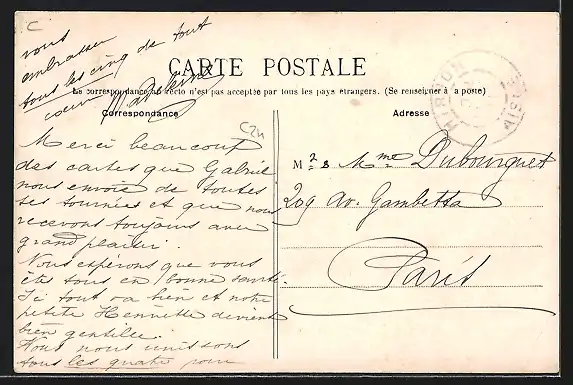 C
vous
embrasser
tous les cinq de tout
coeur M.
CARTE POSTALE
La correspondance au recto n'est pas acceptée par tous les pays étrangers. (Se renseigner à la poste)
Correspondance
Adresse
Merci beaucoup
des cartes que Gabriel
nous envoie de toutes
ses tournées et que nous
recevons toujours avec
grand plaisir.
Nous espérons que vous
êtes tous en bonne santé.
Ici tout va bien et notre
petite Henriette devient
bien gentille.
Nous nous unissons
tous les quatre pour
M Mme Dubourguet
209 Av. Gambetta
Paris